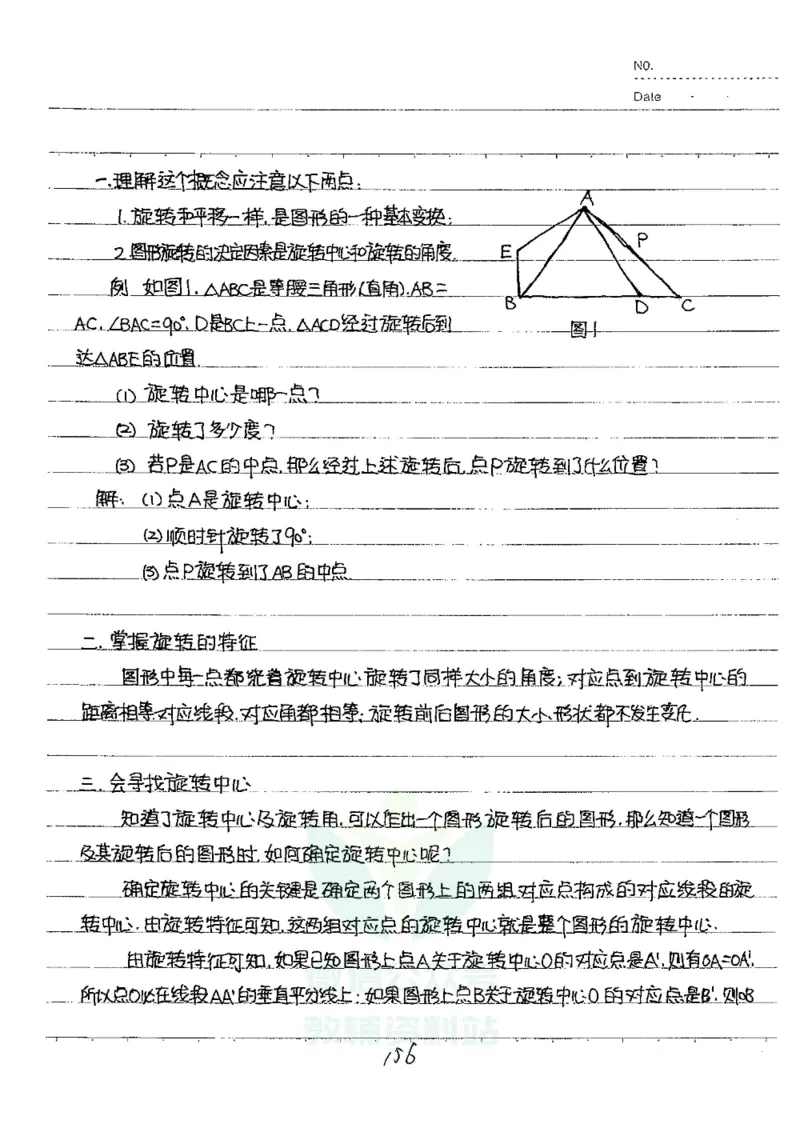 NO.
Date
一.理解这个概念应注意以下两点:
1.旋转和平移一样,是图形的一种基本变换;
2.图形旋转的决定因素是旋转中心和旋转的角度.
例 如图1,△ABC是等腰三角形(直角),AB=
AC,∠BAC=90°,D是BC上一点,△ACD经过旋转后到
达△ABE的位置.
A
P
E
B
D
C
图1
(1) 旋转中心是哪一点?
(2) 旋转了多少度?
(3) 若P是AC的中点,那么经过上述旋转后,点P旋转到了什么位置?
解: (1)点A是旋转中心;
(2)顺时针旋转了90°;
(3)点P旋转到了AB的中点.
二.掌握旋转的特征
图形中每一点都绕着旋转中心旋转了同样大小的角度;对应点到旋转中心的
距离相等,对应线段,对应角都相等;旋转前后图形的大小形状都不发生变化.
三.会寻找旋转中心
知道了旋转中心及旋转角,可以作出一个图形旋转后的图形,那么知道一个图形
及其旋转后的图形时,如何确定旋转中心呢?
确定旋转中心的关键是确定两个图形上的两组对应点构成的对应线段的旋
转中心.由旋转特征可知,这两组对应点的旋转中心就是整个图形的旋转中心.
由旋转特征可知,如果已知图形上点A关于旋转中心O的对应点是A',则有OA=OA',
所以点O必在线段AA'的垂直平分线上;如果图形上点B关于旋转中心O的对应点是B',则OB
微信公众号
教辅资料站
156